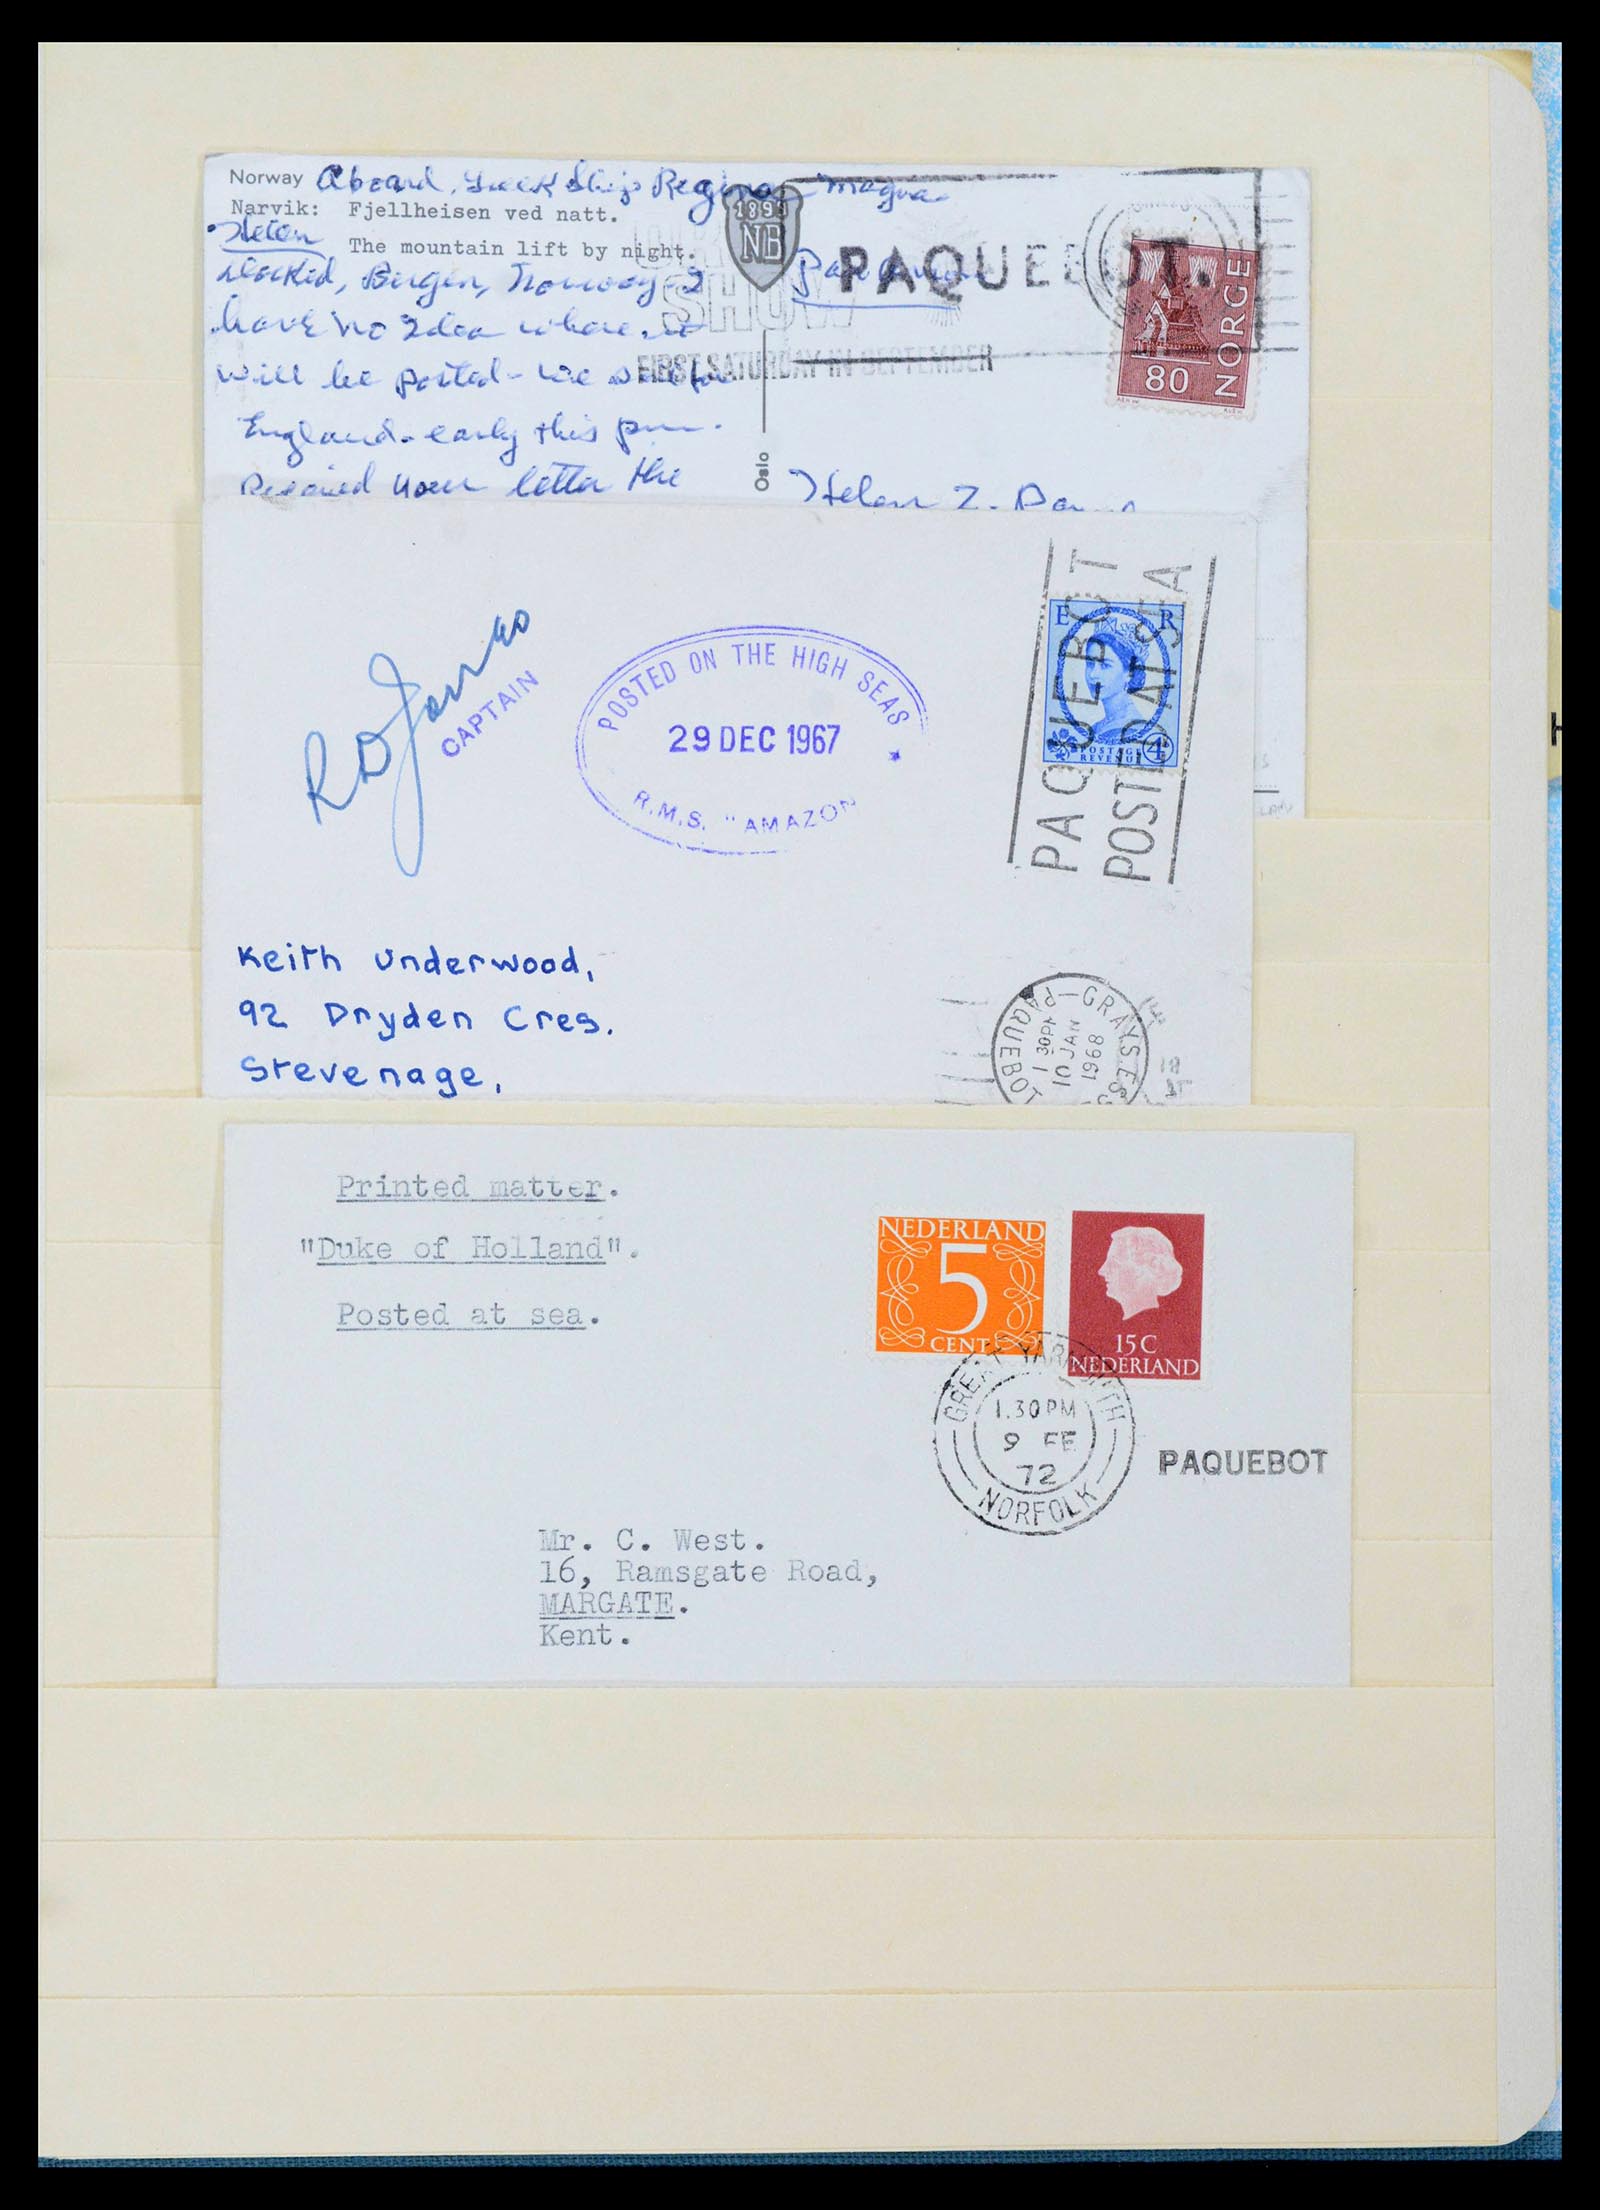 Norway Aboard, Greek Ship Regina Magna
Narvik: Fjellheisen ved natt.
Helen
The mountain lift by night.
1898
NB
docked, Bergen, Norway - I
have no idea where it
will be posted - We sail for
England - early this pm.
Received your letter the
SHOW
FIRST SATURDAY IN SEPTEMBER
PAQUEBOT.
80
NORGE
Oslo
Helen Z.
R D
CAPTAIN
POSTED ON THE HIGH SEAS
29 DEC 1967
R.M.S. "AMAZON
E R
POSTAGE
REVENUE
4
PAQUEBOT
POSTED AT SEA
Keith Underwood,
92 Dryden Cres.
Stevenage,
PAQUEBOT
GRAYS. ESS
1 30PM
10 JAN
1968
Printed matter.
"Duke of Holland".
Posted at sea.
NEDERLAND
5
CENT
15 C
NEDERLAND
GREAT YARMOUTH
1.30 PM
9 FE
72
NORFOLK
PAQUEBOT
Mr. C. West.
16, Ramsgate Road,
MARGATE.
Kent.